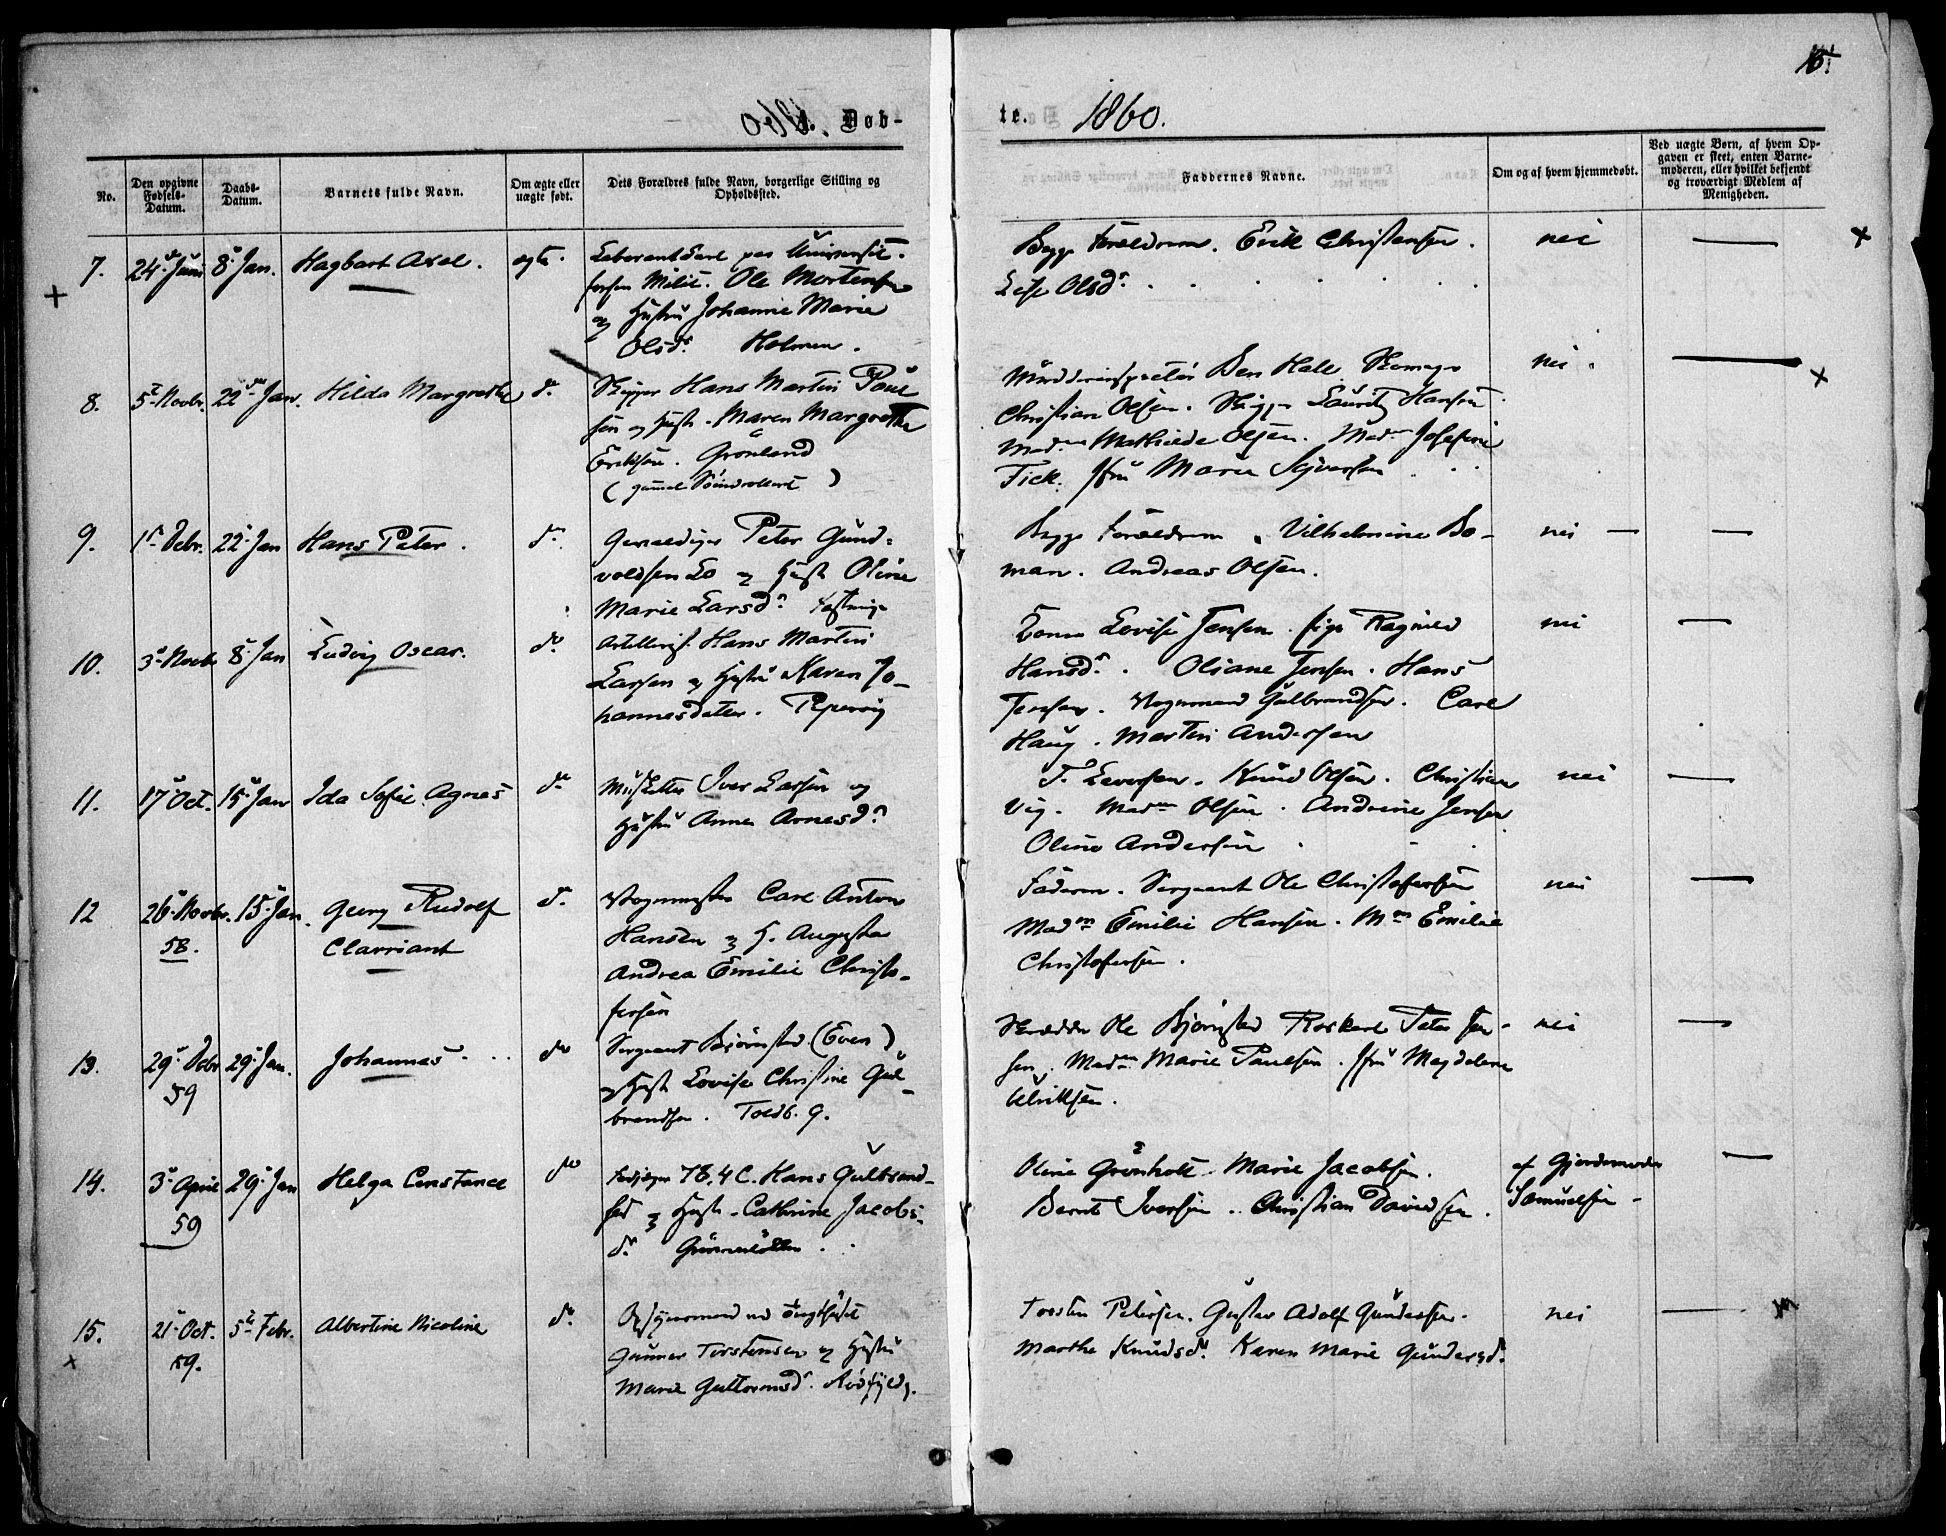 15.
Døb-
te. 1860.
No.
Den opgivne Fødsels-Datum.
Daabs-Datum.
Barnets fulde Navn.
Om ægte eller uægte født.
Dets Forældres fulde Navn, borgerlige Stilling og Opholdssted.
Faddernes Navne.
Om og af hvem hjemmedøbt.
Ved uægte Børn, af hvem Op-
gaven er skeet, enten Barne-
moderen, eller hvilket bekjendt
og troværdigt Medlem af
Menigheden.
7. 24de Juni 8de Jan. Hagbart Axel. ægte.
Ole Mortensen
og Hustru Johanne Marie
Olsdr. Holmen.
Begge Forældrene. Erik Christensen.
Lise Olsdr.
nei
8. 5te Novbr. 22de Jan. Hilda Margrethe do.
Skipper Hans Martin Paul
sen og Hust. Maren Margrethe
Eriksen. Grønland
Hall
Christian Olsen. Skipper Lauritz Hansen
Madm Mathilde Olsen. Madm Josefine
Fick. Jfru Marie Syversen
nei.
9. 1ste Debr. 22de Jan Hans Peter. do.
Peter Gund-
voldsen Lo og Hust Oline
Marie Larsdr.
Begge Forældrene. Vilhelmine Bo-
man. Andreas Olsen.
nei
10. 3de Novbr 8de Jan Ludvig Oscar. do.
Artillerist. Hans Martin
Larsen og Hustru Karen Jo-
hannesdatter. Pipervig
Lovise Jensen. Pige Ragnild
Hansdr. Oliane Jensen. Hans
Jensen. Vognmand Gulbrandsen. Carl
Haug. Martin Andersen
nei
11. 17de Oct. 15de Jan Ida Sofie Agnes do
Musketer Iver Larsen og
Hustru Anne Arnesdr.
Knud Olsen. Christian
Vig. Madm Olsen. Andrine Jensen
Oline Andersen
nei
12 26de Novbr. 58. 15de Jan. Georg Rudolf
Clarriant
do.
Vognmester Carl Anton
Hansen og H. Augusta
Andrea Emilie Christo-
fersen
Faderen. Sergeant Ole Christofersen
Madm Emilie Hansen. Mm Emilie
Christofersen.
nei
13. 29de Debr 59 29de Jan. Johannes do
Sergeant Bjørnstad (Even)
og Hust Lovise Christine Gul-
brandsen. Toldb. G.
Skrædder Ole Bjørnstad Peter Jen-
sen. Madm Marie Paulsen. Jfru Magdalene
Ulriksen.
nei
14. 3de April 59 29de Jan Helga Constance do
Hans Gulbrand-
sen og Hust. Cathrine Jacobs-
dr. Grünerløkken
Oline Grønholt. Marie Jacobsen.
Bernt Iversen. Christian Davidsen.
af Gjordemoder
Samuelsen
15. 21de Oct. 59. 5te Febr. Albertine Nicoline do.
Opsynsmand ved Tugthuset
Gunner Torstensen og Hustru
Marie Guttormsdr.
Torsten Petersen. Gustav Adolf Gundersen.
Marthe Knudsdr. Karen Marie Gundersdr.
nei